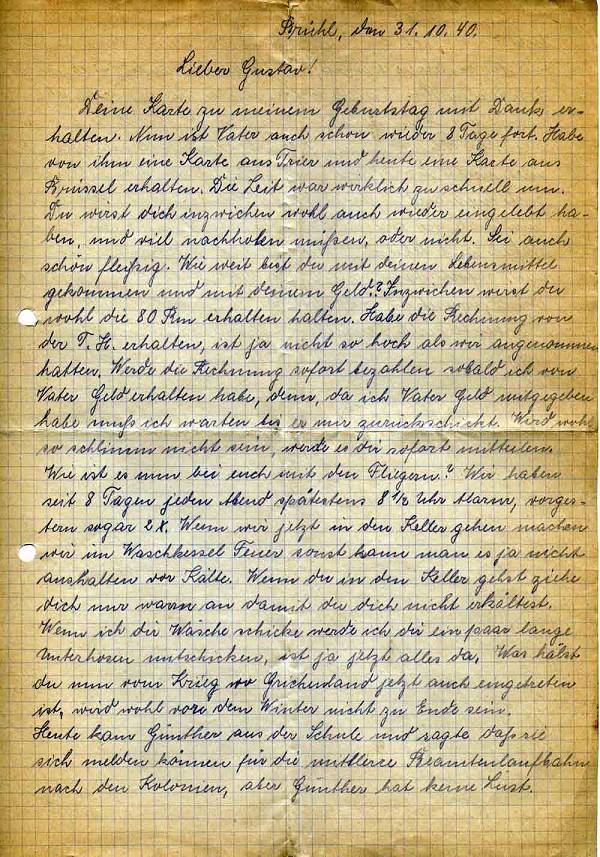 Brühl, den 31.10.40.
Lieber Gustav!
Deine Karte zu meinem Geburtstag mit Dank er-
halten. Nun ist Vater auch schon wieder 8 Tage fort. Habe
von ihm eine Karte aus Trier und heute eine Karte aus
Brüssel erhalten. Die Zeit war wirklich zu schnell um.
Du wirst dich inzwichen wohl auch wieder eingelebt ha-
ben, und viel nachholen müßen, oder nicht. Sei auch
schön fleißig. Wie weit bist du mit deinen Lebensmittel
gekommen und mit deinem Geld? Inzwichen wirst du
wohl die 80 Rm erhalten halten. Habe die Rechnung von
der T. H. erhalten, ist ja nicht so hoch als wir angenommen
hatten. Werde die Rechnung sofort bezahlen sobald ich von
Vater Geld erhalten habe, denn, da ich Vater Geld mitgegeben
habe muß ich warten bis er mir zurückschickt. Wird wohl
so schlimm nicht sein, werde es dir sofort mitteilen.
Wie ist es nun bei euch mit den Fliegern? Wir haben
seit 8 Tagen jeden Abend spätestens 8 1/2 Uhr Alarm, vorges-
tern sogar 2 X. Wenn wir jetzt in den Keller gehen machen
wir im Waschkessel Feuer sonst kann man es ja nicht
aushalten vor Kälte. Wenn du in den Keller gehst ziehe
dich nur warm an damit du dich nicht erkältest.
Wenn ich dir Wäsche schicke werde ich dir ein paar lange
Unterhosen mitschicken, ist ja jetzt alles da. Was hälst
du nun vom Krieg wo Grichenland jetzt auch eingetreten
ist, wird wohl vor dem Winter nicht zu Ende sein.
Heute kam Günther aus der Schule und sagte daß sie
sich melden können für die mittlerce Beamtenlaufbahn
nach den Kolonien, aber Günther hat keine Lust.